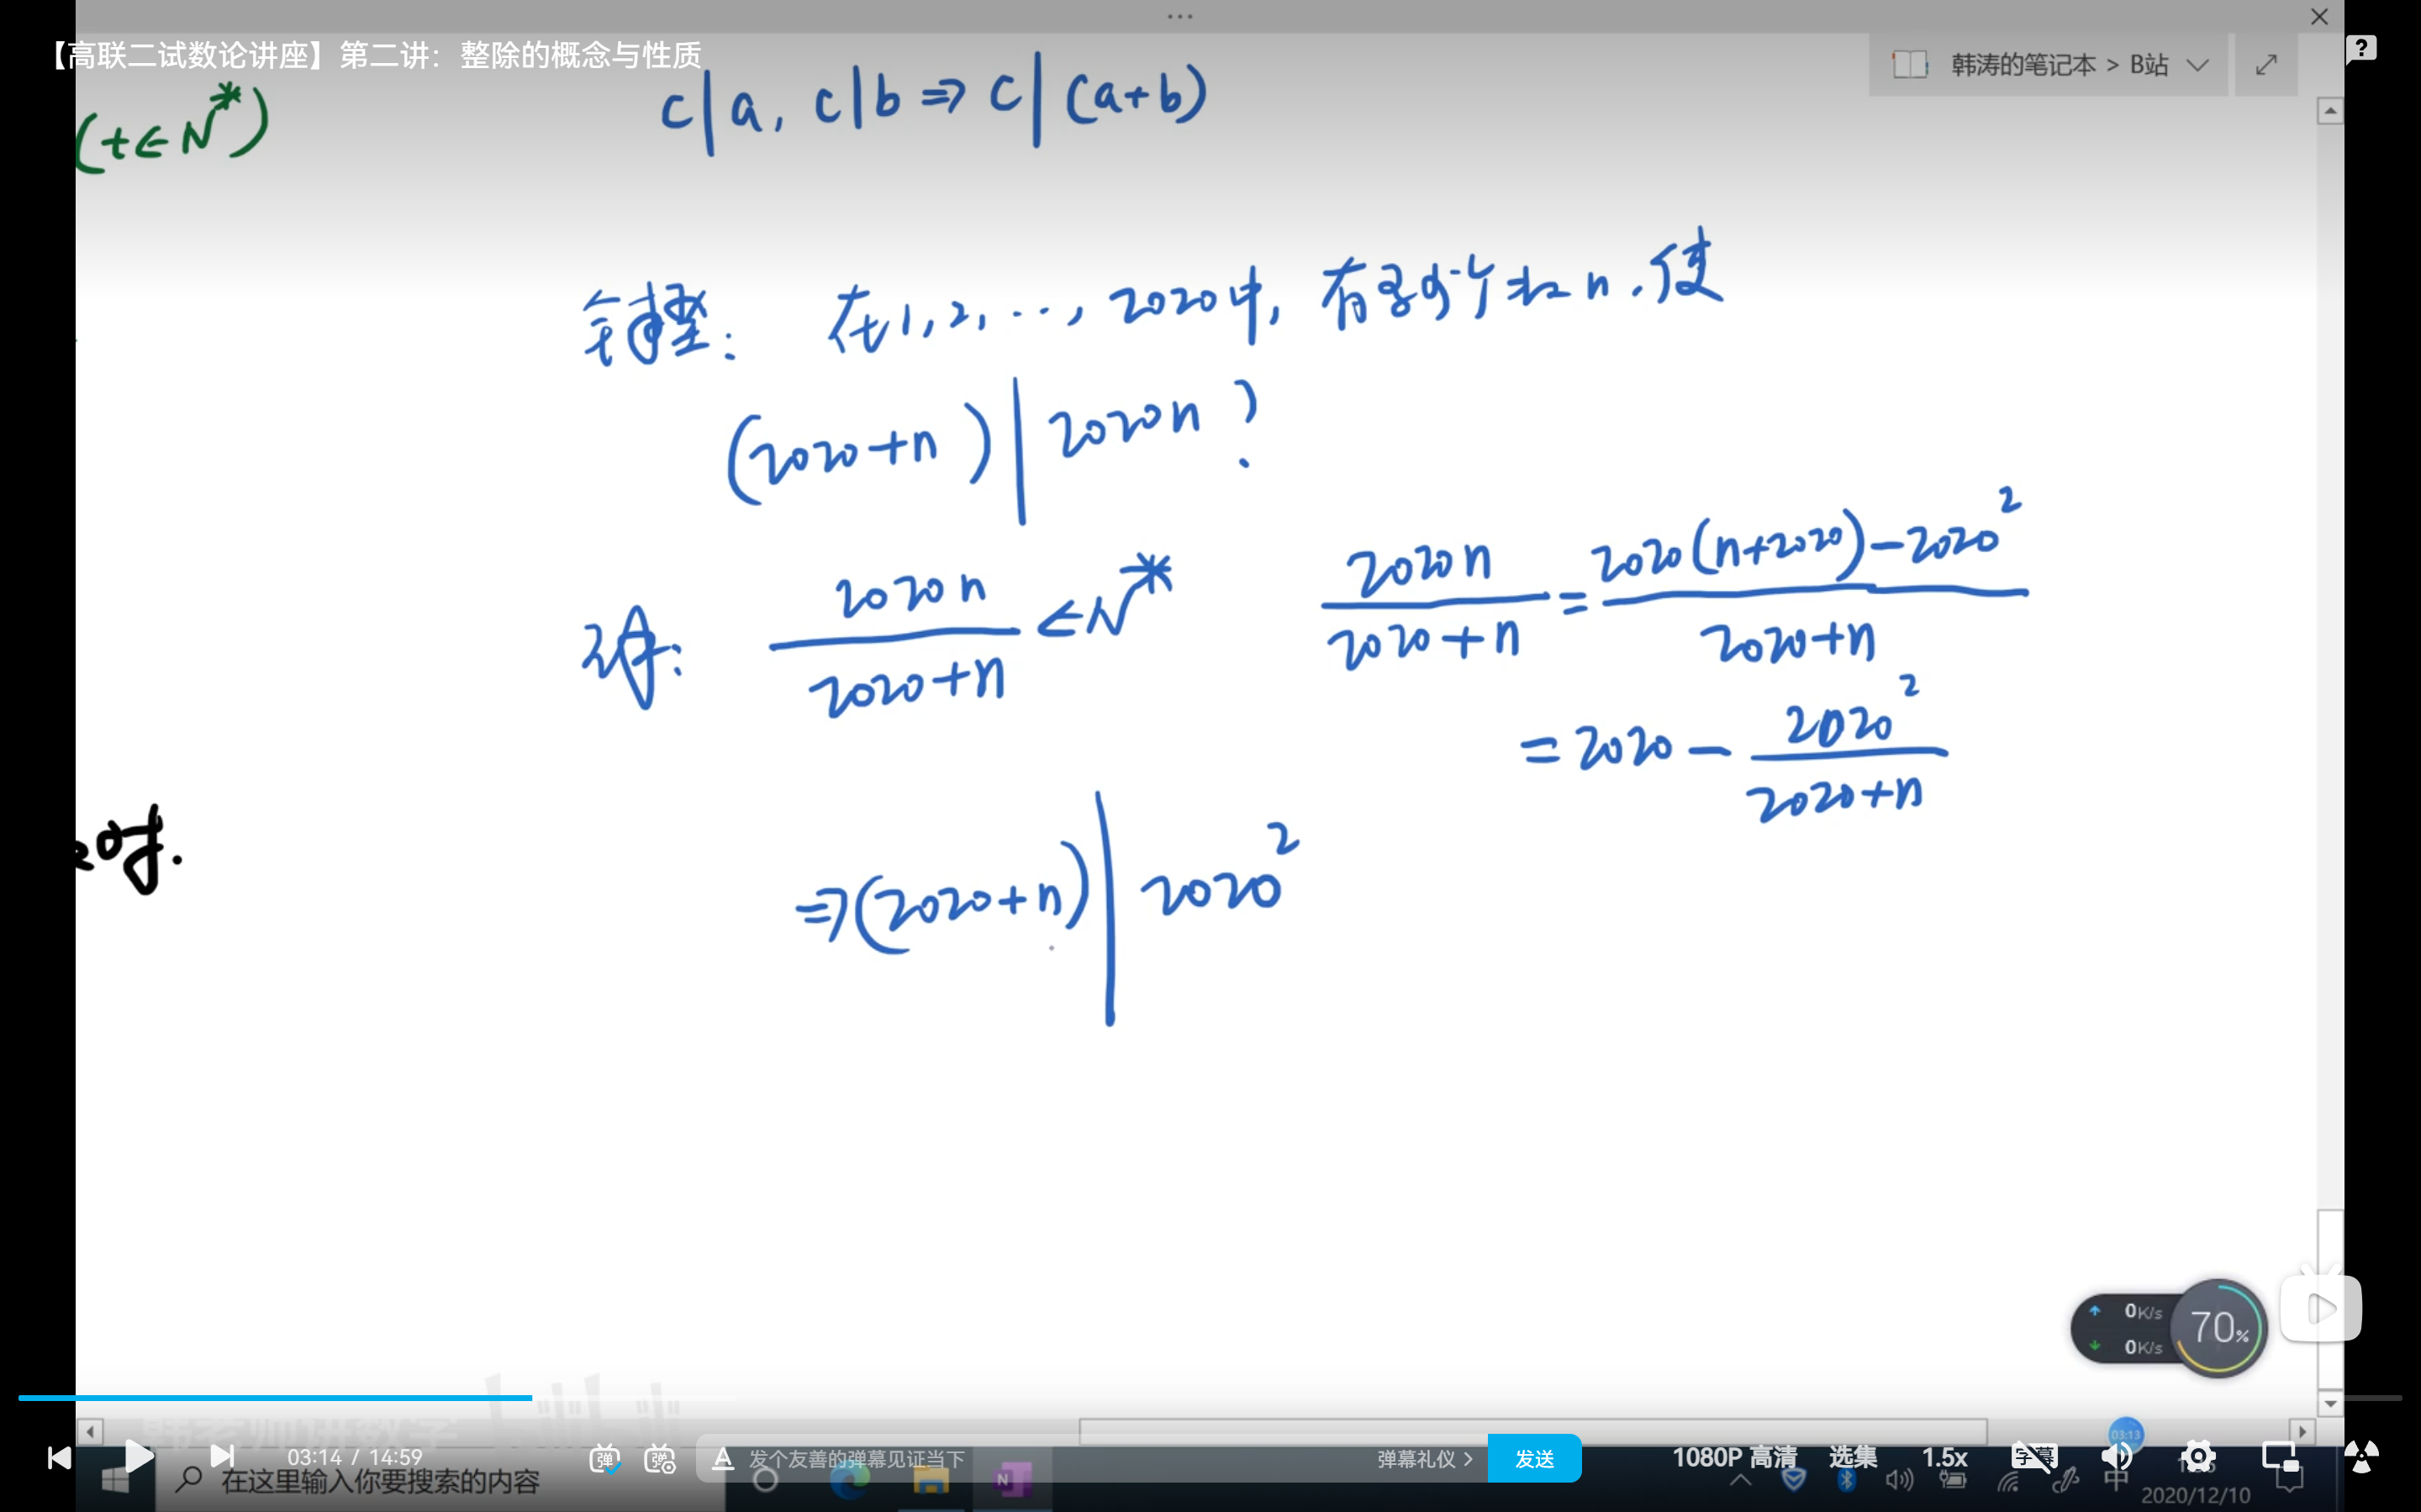 【高联二试数论讲座】第二讲：整除的概念与性质
韩涛的笔记本 > B站
(t∈N*)
c|a, c|b ⇒ c|(a+b)
在1,2,…,2020中,有多少个n,使
(2020+n)|2020n?
解: 2020n/(2020+n) ∈N* 2020n/(2020+n) = (2020(n+2020)-2020²)/(2020+n)
= 2020 - 2020²/(2020+n)
时.
⇒(2020+n)|2020²
0K/s
0K/s
70%
韩老师讲数学
03:13
03:14 / 14:59
弹
弹
A
发个友善的弹幕见证当下
弹幕礼仪 >
发送
1080P 高清
选集
1.5x
字幕
在这里输入你要搜索的内容
N
中
2020/12/10